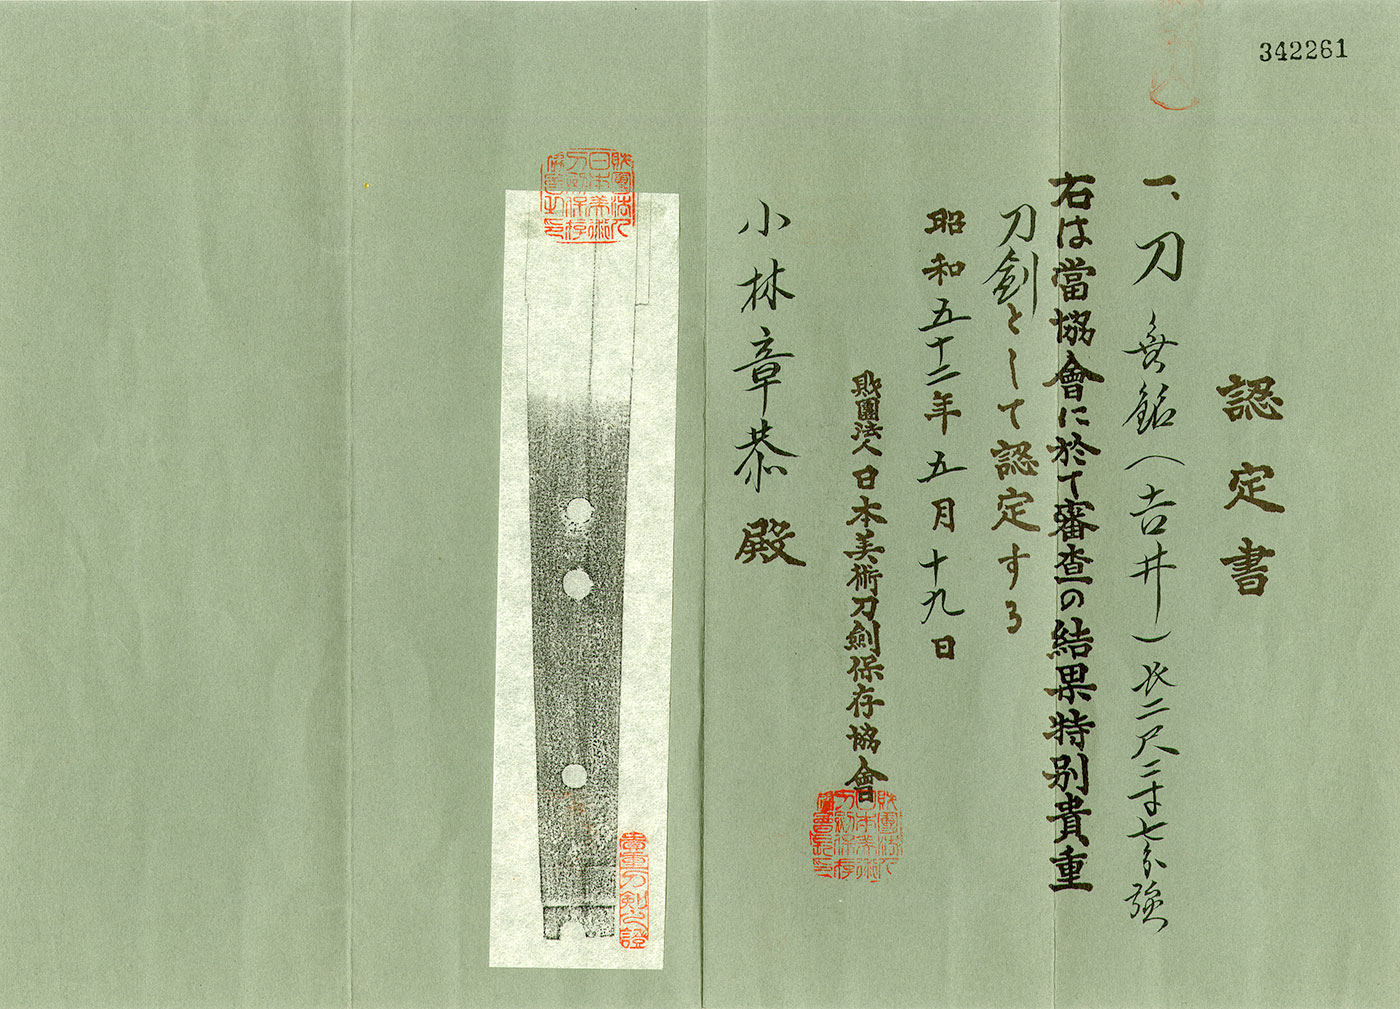 342261
認定書
一、刀 無銘(吉井)長二尺二寸七分強
右は當協會に於て審査の結果特別貴重
刀劍として認定する
昭和五十二年五月十九日
財團法人日本美術刀劍保存協會
財團法人日本美術刀劍保存協會長之印
小林章恭殿
財團法人日本美術刀劍保存協會之印
貴重刀剣之證